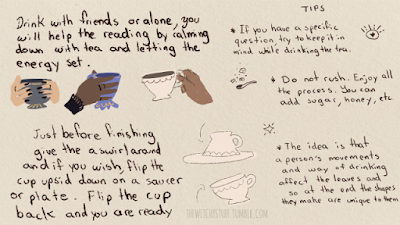 Drink with friends or alone, you
will help the reading by calming
down with tea and letting the
energy set.
Just before finishing
give the a swirl around
and if you wish, flip the
cup upsid down on a saucer
or plate. Flip the cup
back and you are ready
TIPS
* If you have a specific
question, try to keep it in
mind while drinking the tea.
* Do not rush. Enjoy all
the process. You can
add sugar, honey, etc
* The idea is that
a person's movements
and way of drinking
affect the leaves and
so at the end the shapes
they make are unique to them
THEWITCHYSTUFF.TUMBLR.COM